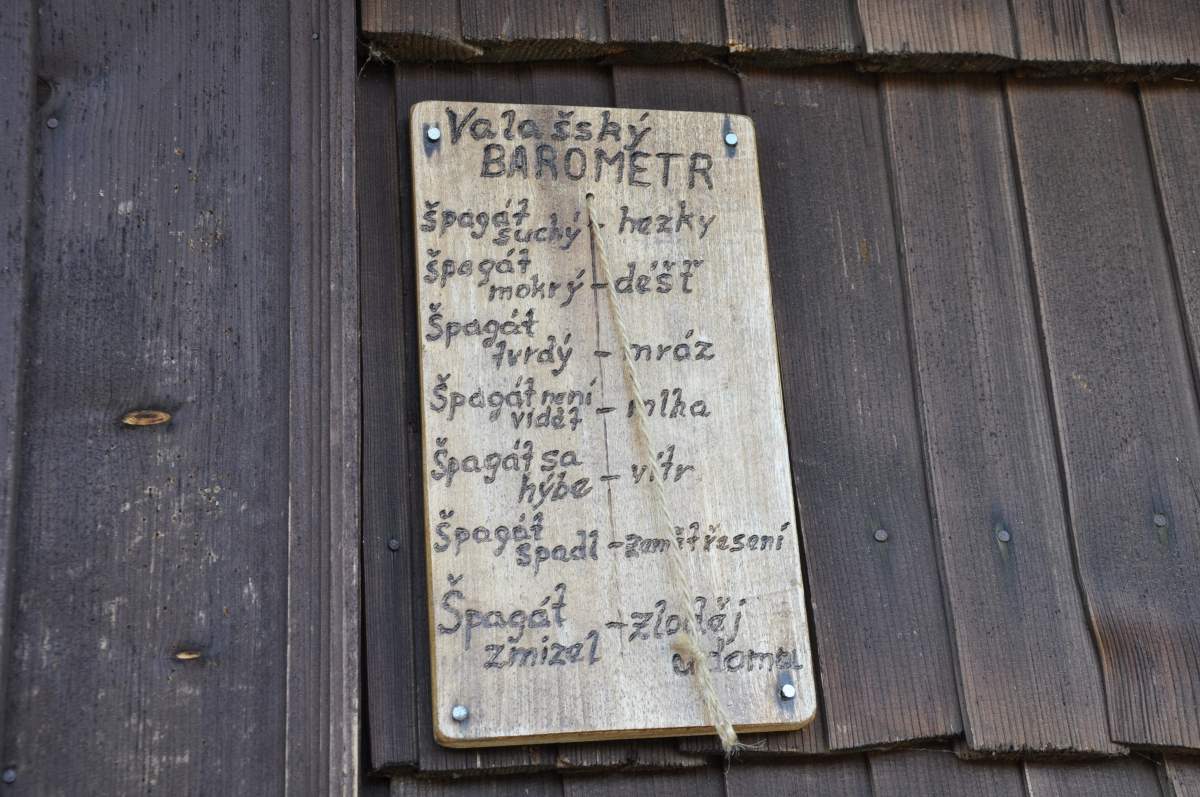 Valašský
BAROMETR
špagát
suchý - hezky
špagát
mokrý - déšť
Špagát
tvrdý - mráz
Špagát není
vidět - mlha
Špagát sa
hýbe - vítr
Špagát
spadl - zemětřesení
Špagát - zloděj
zmizel u domu